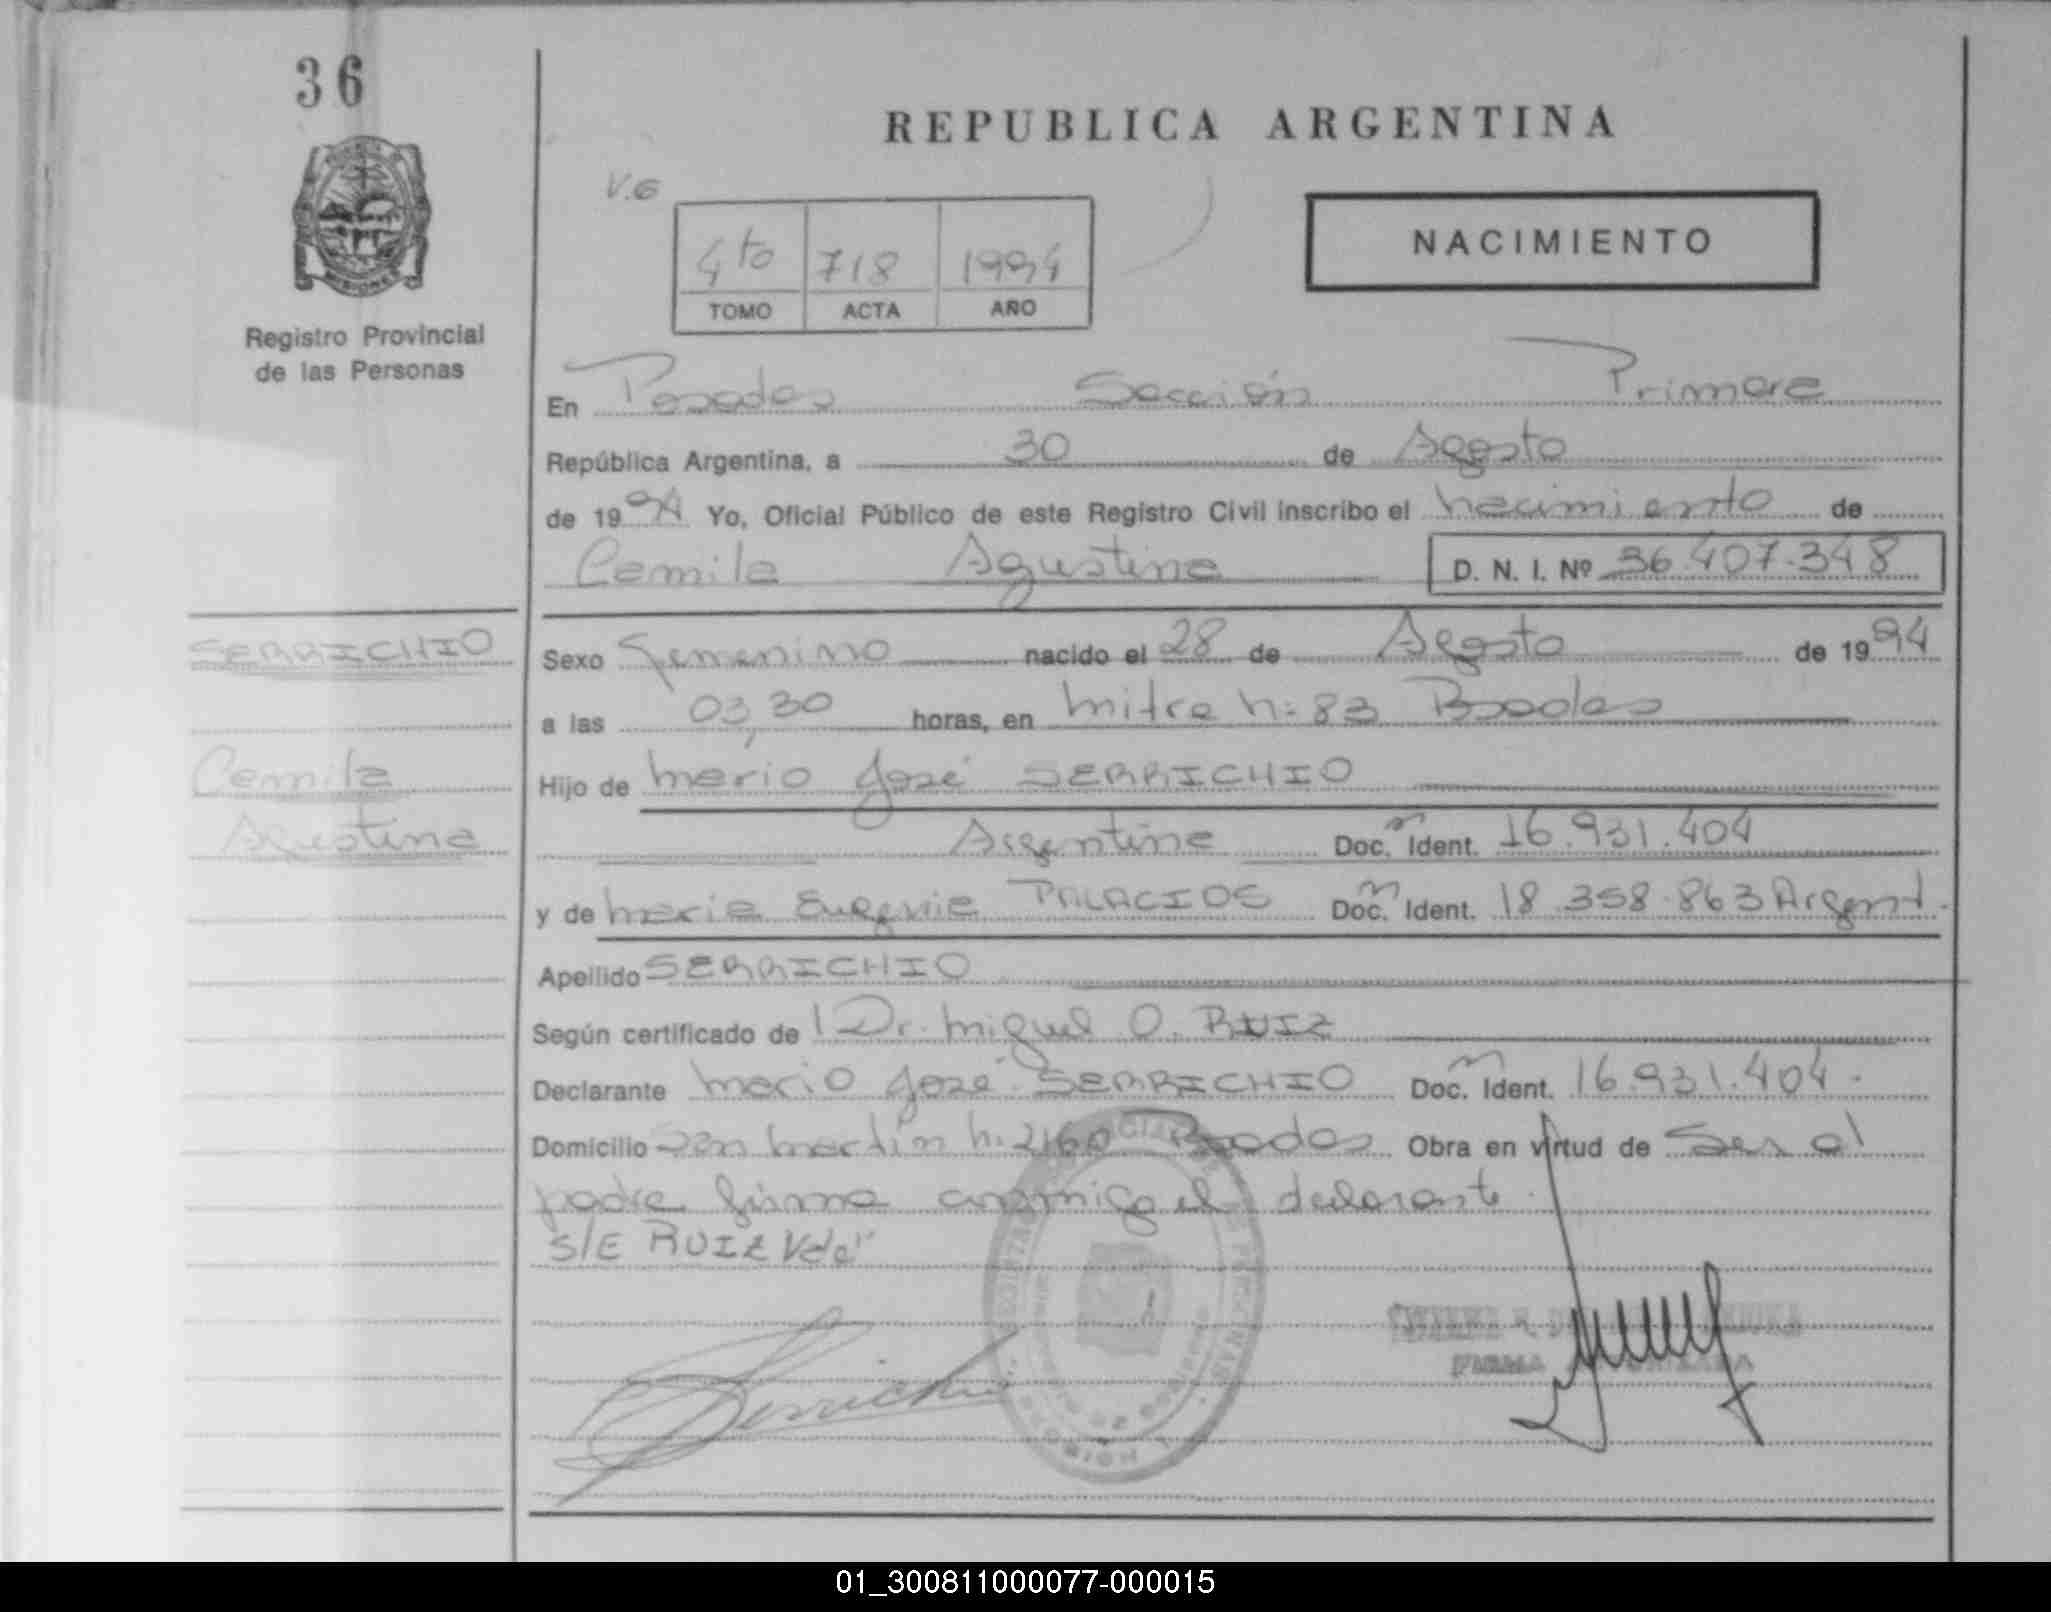 36
REPUBLICA ARGENTINA
V.G
4to 718 1994
TOMO ACTA AÑO
NACIMIENTO
Registro Provincial
de las Personas
En Posadas Sección Primera
República Argentina, a 30 de Agosto
de 1994 Yo, Oficial Público de este Registro Civil inscribo el nacimiento de
Camila Agustina D. N. I. Nº 36.407.348
SERRICHIO
Camila
Agustina
Sexo Femenino nacido el 28 de Agosto de 1994
a las 03,30 horas, en Mitre n: 83 Posadas
Hijo de Mario José SERRICHIO
Argentina Doc. Ident. 16.931.404
y de Maria Eugenia PALACIOS Doc. Ident. 18.358.863 Argent.
Apellido SERRICHIO
Según certificado de Dr. Miguel O. RUIZ
Declarante Mario José SERRICHIO Doc. Ident. 16.931.404.
Domicilio San Martín n: 2160 Posadas Obra en virtud de Ser el
padre firma conmigo el declarante.
S/E RUIZ Vale"
Serrichio
FIRMA
01_300811000077-000015